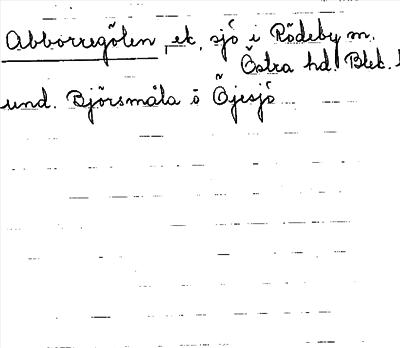 Abborregölen, ek, sjö i Rödeby m.
Östra hd. Blek. l
und. Björsmåla ö Öjesjö